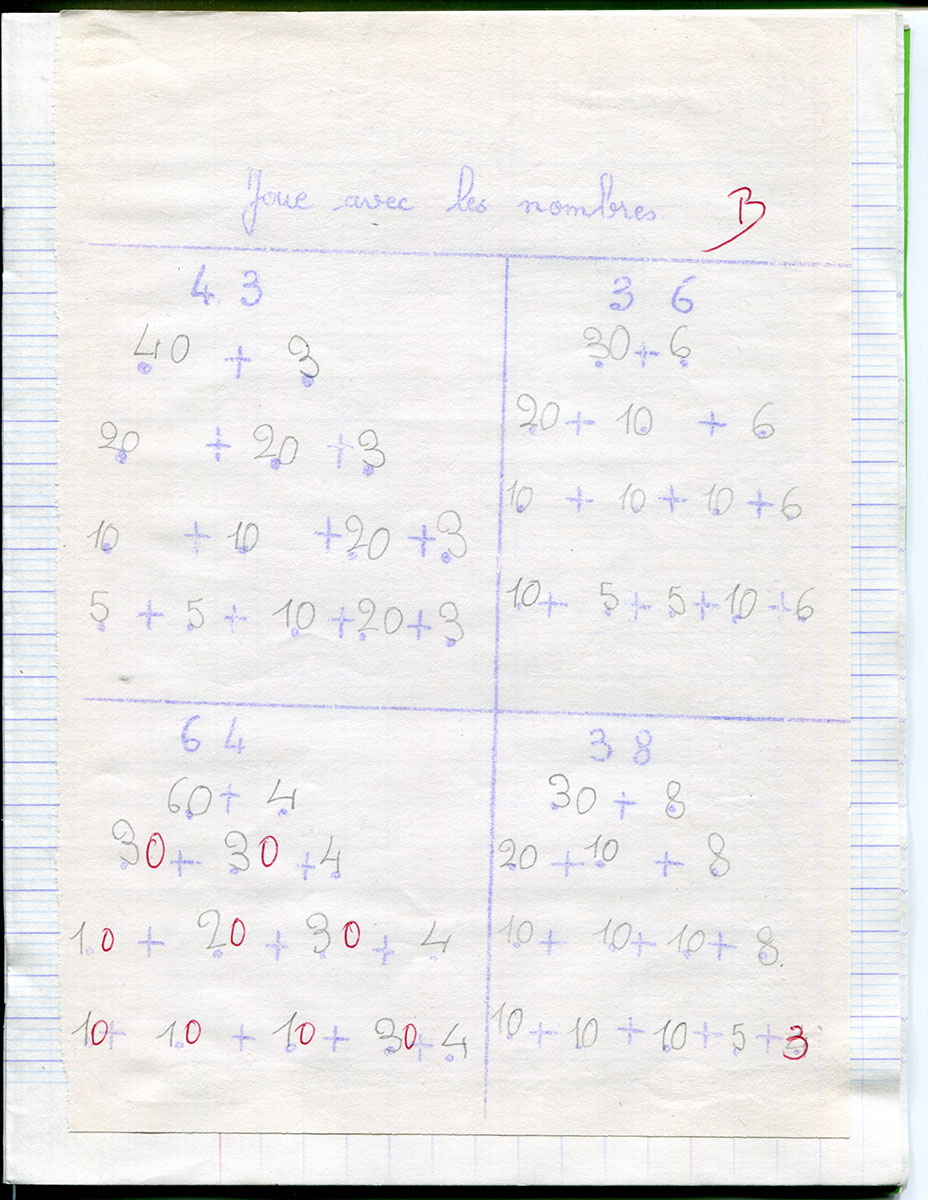 Joue avec les nombres B
4 3
40 + 3
20 + 20 + 3
10 + 10 + 20 + 3
5 + 5 + 10 + 20 + 3
3 6
30 + 6
20 + 10 + 6
10 + 10 + 10 + 6
10 + 5 + 5 + 10 + 6
6 4
60 + 4
30 + 30 + 4
10 + 20 + 30 + 4
10 + 10 + 10 + 30 + 4
3 8
30 + 8
20 + 10 + 8
10 + 10 + 10 + 8
10 + 10 + 10 + 5 + 3